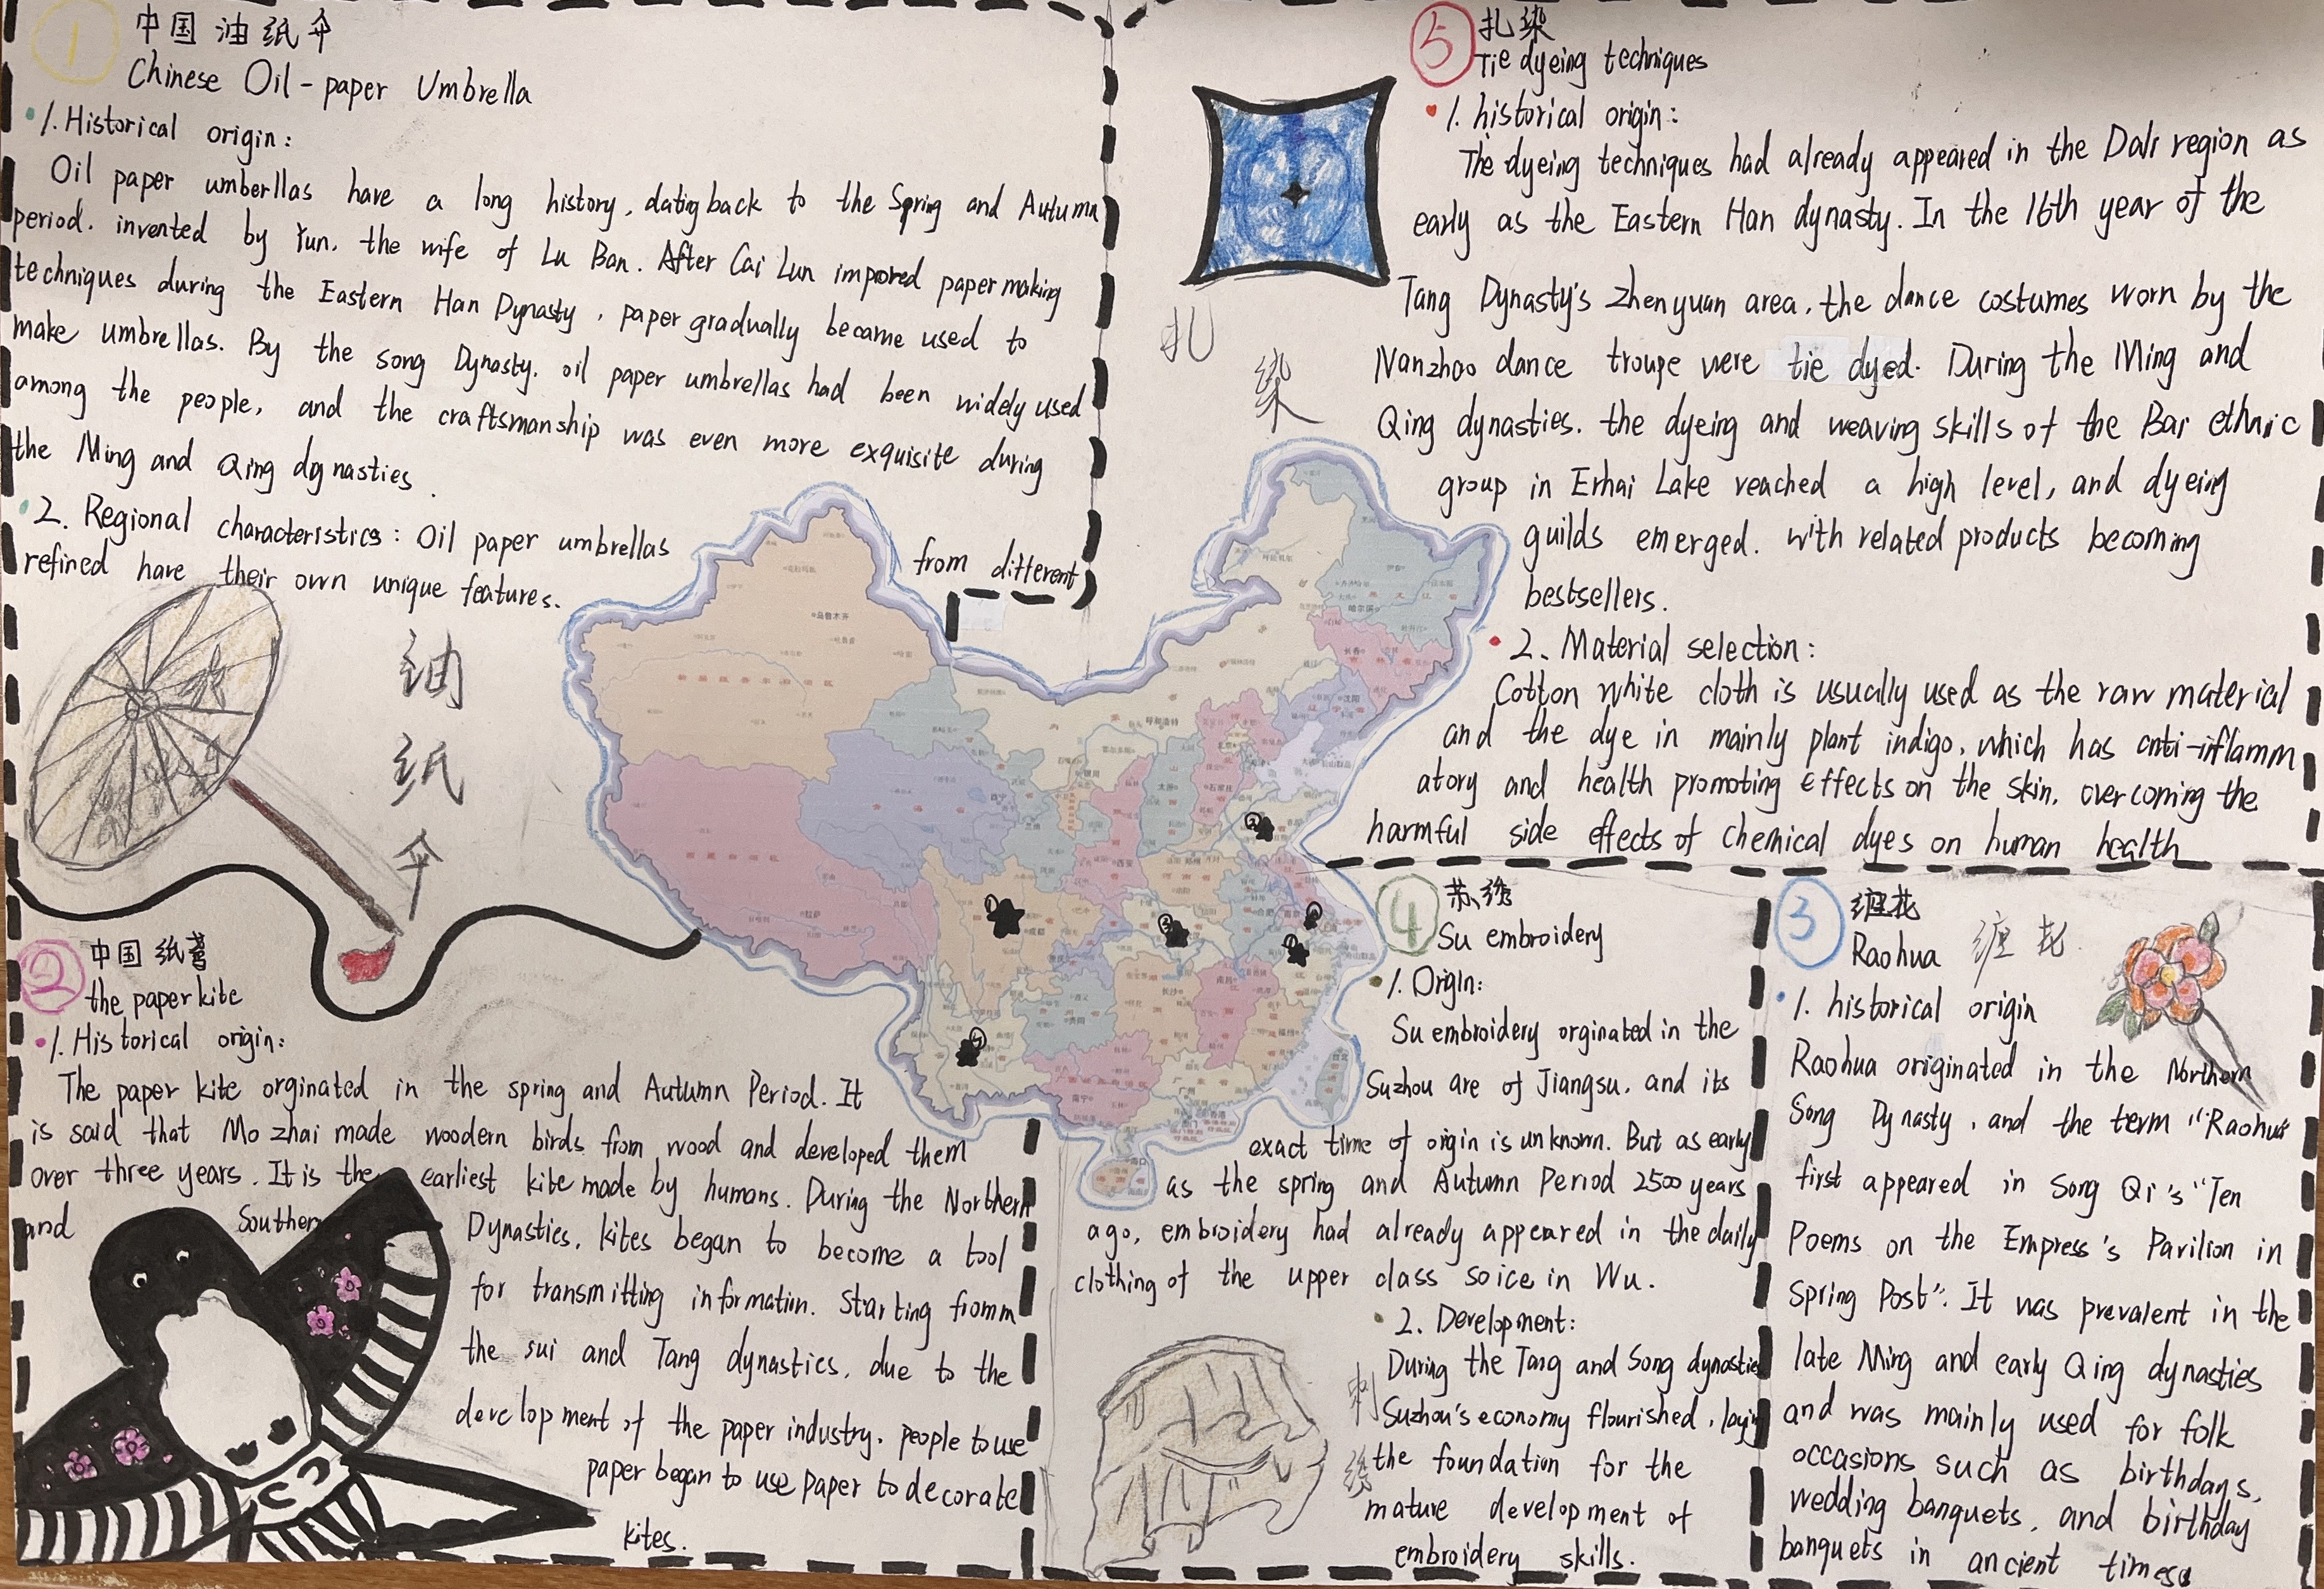 1
中国油纸伞
Chinese Oil-paper Umbrella
1. Historical origin:
Oil paper umberllas have a long history, dating back to the Spring and Autumn
period. invented by Yun, the wife of Lu Ban. After Cai Lun improred paper making
techniques during the Eastern Han Dynasty, paper gradually became used to
make umbrellas. By the song Dynasty, oil paper umbrellas had been widely used
among the people, and the craftsmanship was even more exquisite during
the Ming and Qing dynasties.
2. Regional characteristics: Oil paper umbrellas from different
refined have their own unique features.
油
纸
伞
2
中国纸鸢
the paper kite
1. Historical origin:
The paper kite orginated in the spring and Autumn Period. It
is said that Mo zhai made woodern birds from wood and developed them
over three years. It is the earliest kite made by humans. During the Northern
and Southern Dynasties, kites began to become a tool
for transmitting information. Starting fromm
the sui and Tang dynastics, due to the
development of the paper industry. people to use
paper began to use paper to decorate
kites.
5
扎染
Tie dyeing techniques
1. historical origin:
The dyeing techniques had already appeared in the Dali region as
early as the Eastern Han dynasty. In the 16th year of the
Tang Dynasty's Zhenyuan area, the dance costumes worn by the
Nanzhao dance troupe were tie dyed. During the Ming and
Qing dynasties. the dyeing and weaving skills of the Bai ethnic
group in Erhai Lake reached a high level, and dyeing
guilds emerged. with related products becoming
bestsellers.
2. Material selection:
Cotton white cloth is usually used as the raw material
and the dye in mainly plant indigo, which has anti-inflamm
atory and health promoting effects on the skin, overcoming the
harmful side effects of chemical dyes on human health
扎
染
4
苏绣
Su embroidery
1. Origin:
Su embroidery orginated in the
Suzhou are of Jiangsu, and its
exact time of origin is unknown. But as early
as the spring and Autumn Period 2500 years
ago, embroidery had already appeared in the daily
clothing of the upper class soice in Wu.
2. Development:
During the Tang and Song dynastie
Suzhou's economy flourished, laying
the foundation for the
mature development of
embroidery skills.
刺
绣
3
缠花
Raohua
缠花
1. historical origin
Raohua originated in the Northern
Song Dynasty, and the term "Raohua"
first appeared in Song Qi's "Ten
Poems on the Empress's Pavilion in
Spring Post". It was prevalent in the
late Ming and early Qing dynasties
and was mainly used for folk
occasions such as birthdays,
wedding banquets, and birthday
banquets in ancient times.
乌鲁木齐
哈尔滨
长春
沈阳
呼和浩特
石家庄
西安
成都
合肥
南昌
长沙
贵阳
福州
南宁